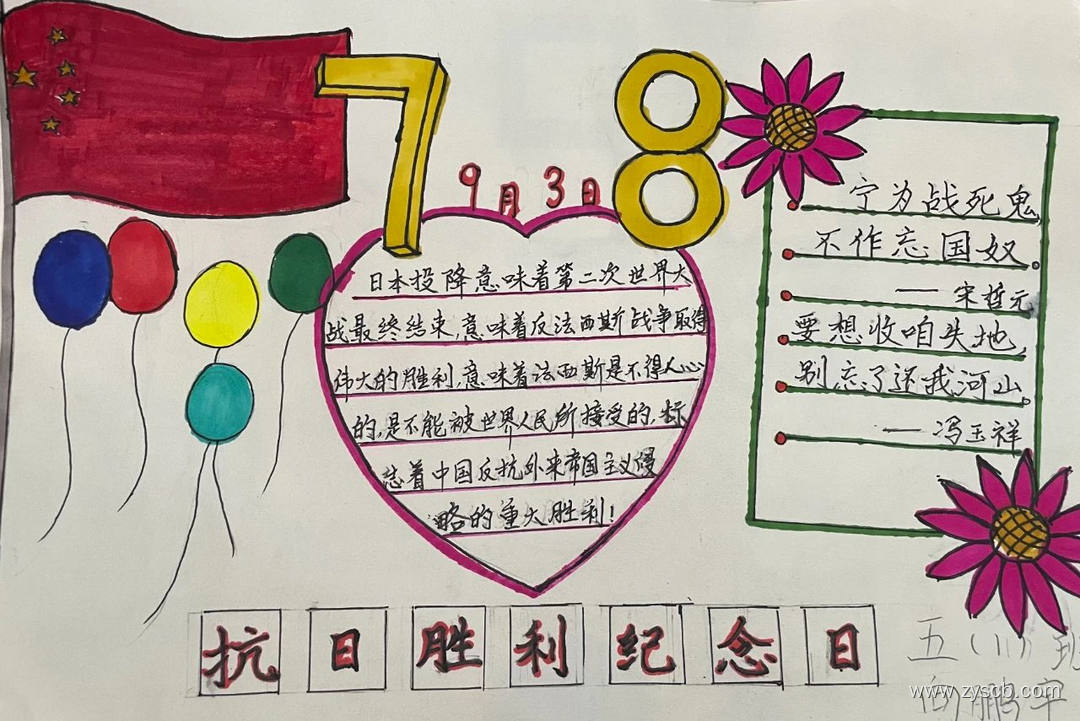 78
9月3日
日本投降意味着第二次世界大
战最终结束,意味着反法西斯战争取得
伟大的胜利,意味着法西斯是不得人心
的,是不能被世界人民所接受的,标
志着中国反抗外来帝国主义侵
略的重大胜利!
宁为战死鬼
不作忘国奴。
——宋哲元
要想收咱失地,
别忘了还我河山。
——冯玉祥
抗日胜利纪念日
五(11)班
向鹏宇
www.zyscb.com